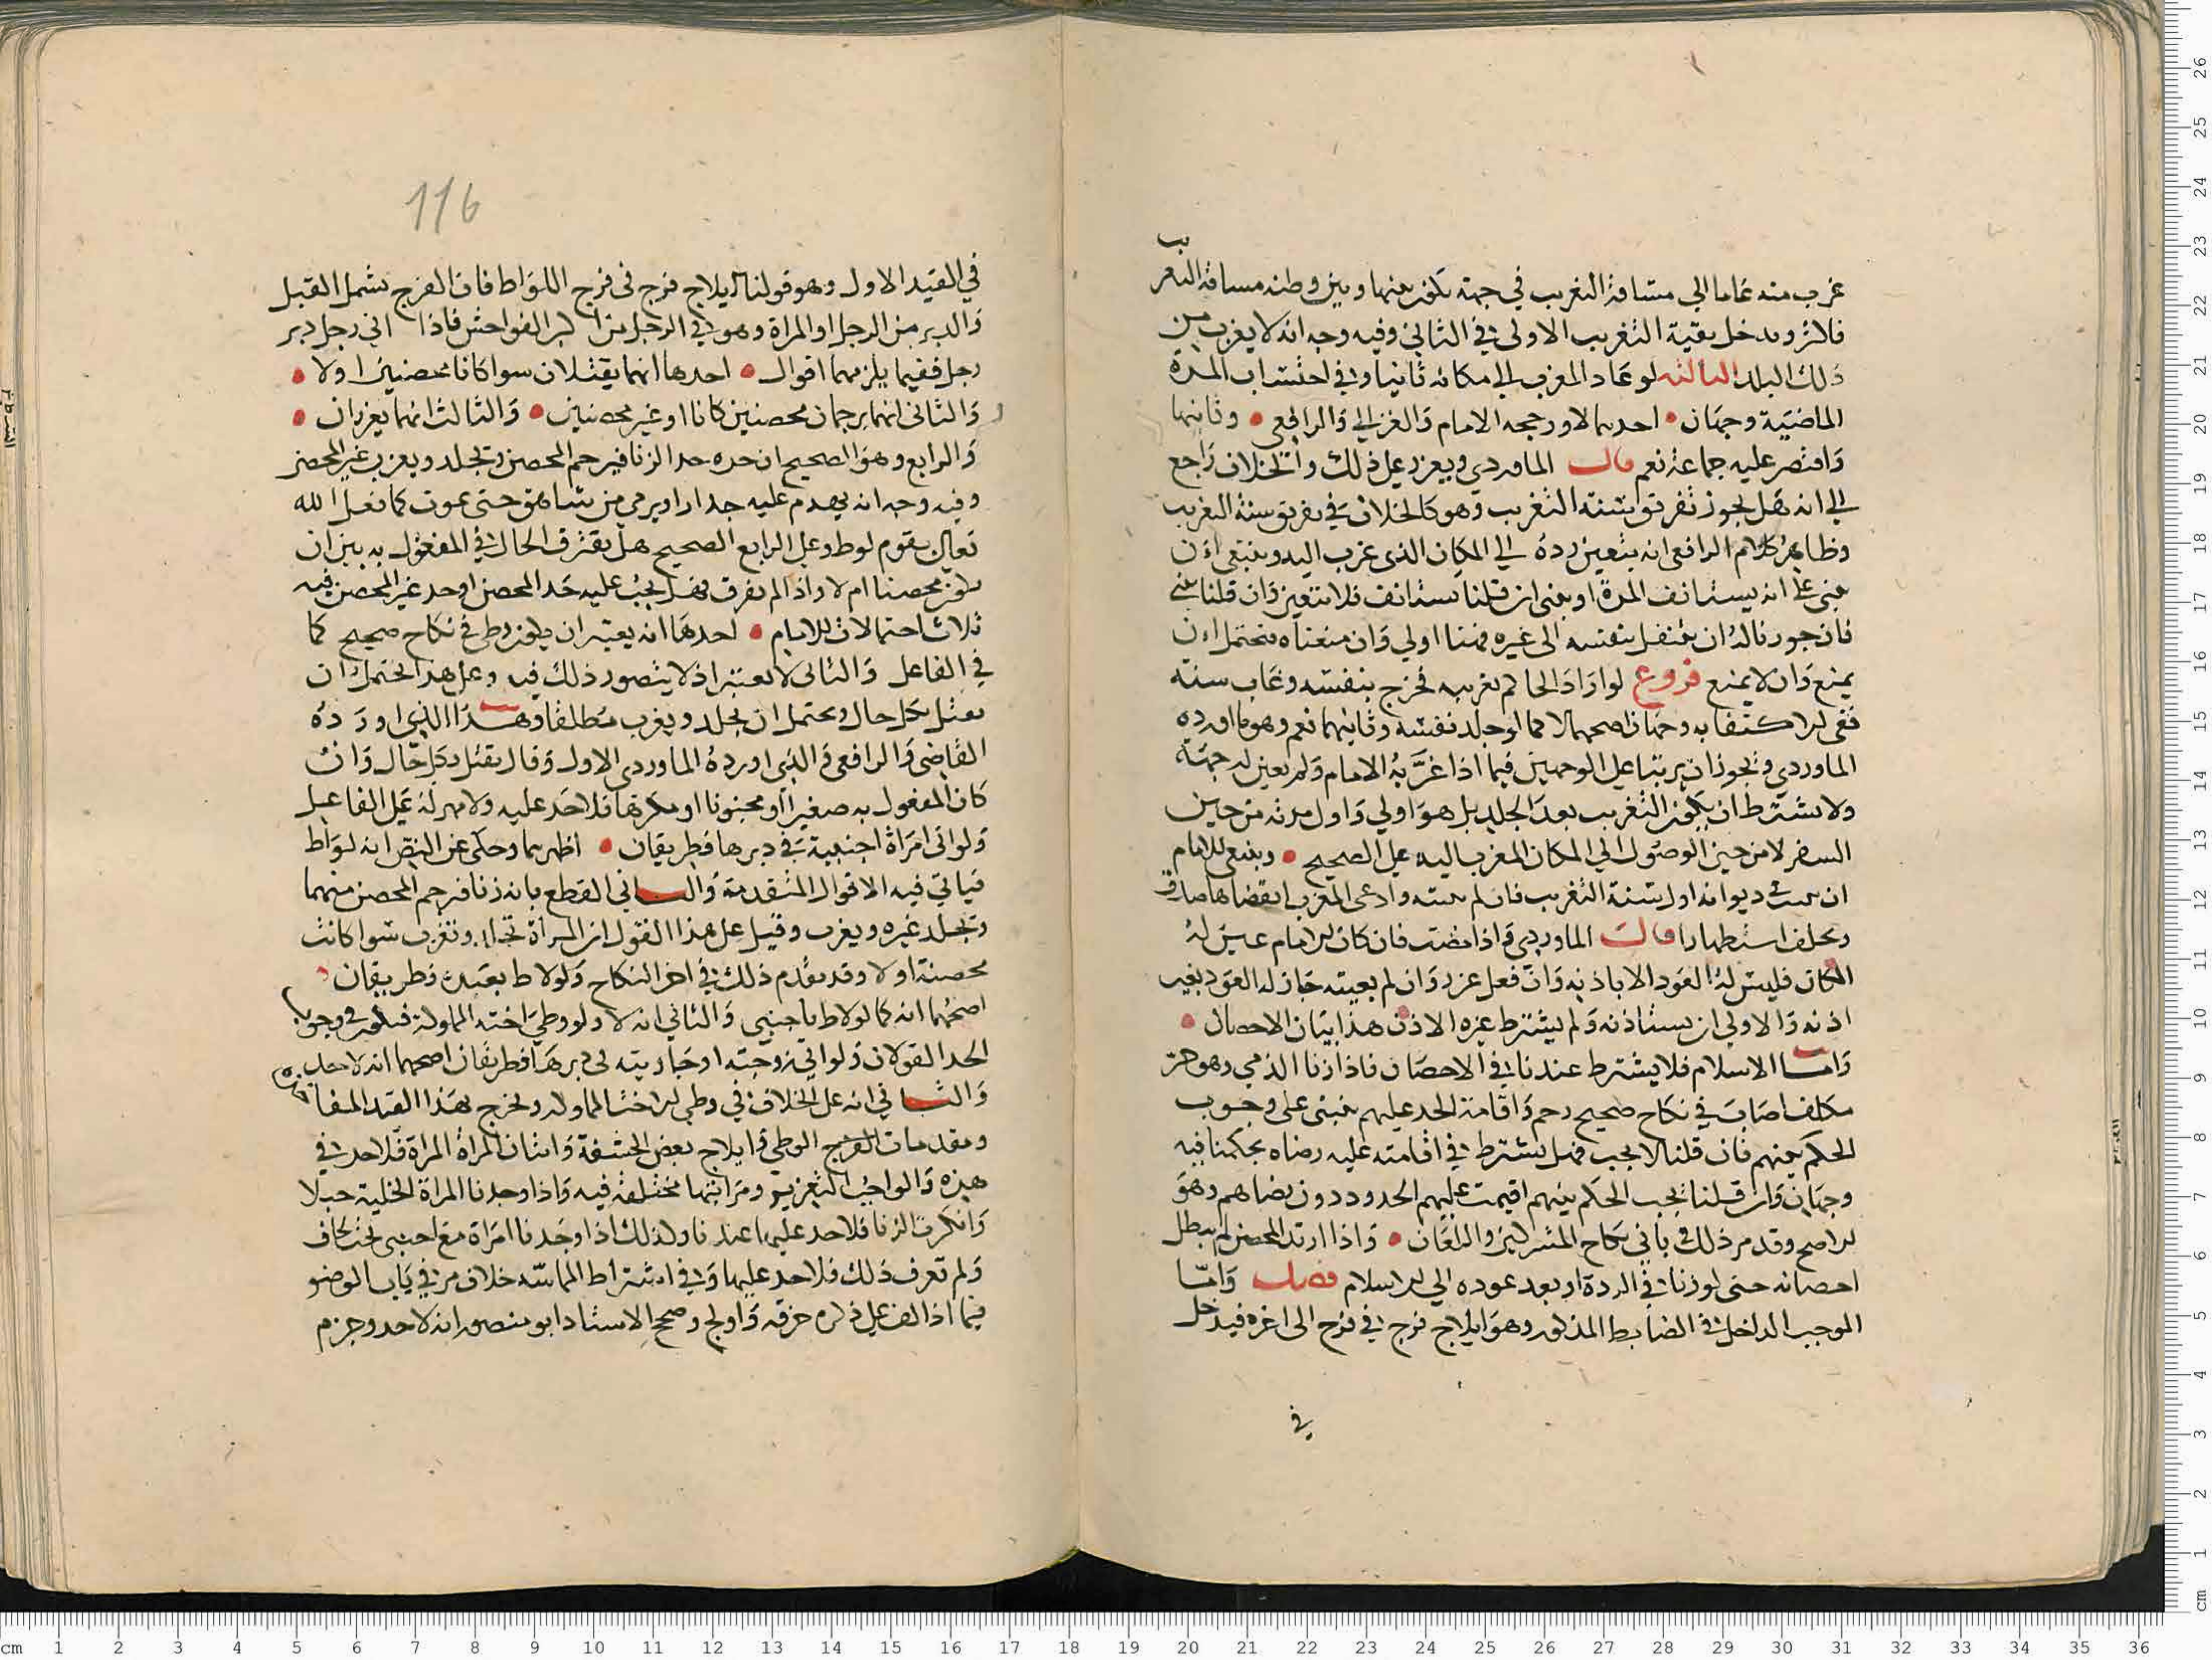 غرب منه عاما الي مسافة التغريب في جهة تكون بينها وبين وطنه مسافة التغريب
فاكثر ويدخل بقية التغريب الاولى في الثاني وفيه وجه انه لا يغرب من
ذلك البلد الثالثه لو عاد المغرب الي مكانه ثانيا وفي احتساب المدة
الماضية وجهان احدهما لا ورجحه الامام والغزالي والرافعي وثانيهما
واقتصر عليه جماعة نعم قال الماوردي ويعزر علي ذلك والخلاف راجع
الي انه هل يجوز تفريق سنة التغريب وهو كالخلاف في تفريق سنة التغريب
وظاهر كلام الرافعي انه يتعين رده الي المكان الذي غرب اليه وينبغي ان
يبني علي انه يستانف المدة او يبني ان قلنا يستانف فلا يتعين وان قلنا يبني
فان جوزنا له ان ينتقل بنفسه الى غيره فهنا اولي وان منعناه فتحتمل ان
يمنع وان لا يمنع فروع لو اراد الحاكم تغريبه فخرج بنفسه وغاب سنة
ففي الاكتفا به وجهان اصحهما لا كما لو جلد نفسه وثانيهما نعم وهو ما اورده
الماوردي ويجوز ان يرتبا علي الوجهين فيما اذا غربه الامام ولم يعين له جهة
ولا يشترط ان يكون التغريب بعد الجلد بل هو اولي واول مدته من حين
السفر لا من حين الوصول الي المكان المغرب اليه علي الصحيح وينبغي للامام
ان يثبت في ديوانه اول سنة التغريب فان لم يثبته وادعى المغرب انقضاها صدق
ويحلف استظهارا قال الماوردي واذا مضت فان كان الامام عين له
المكان فليس له العود الا باذنه وان فعل عزر وان لم يعينه جاز له العود بغير
اذنه والاولي ان يستاذنه ولم يشترط غيره الاذن هذا بيان الاحصان
واما الاسلام فلا يشترط عندنا في الاحصان فاذا زنا الذمي وهو حر
مكلف اصاب في نكاح صحيح رجم واقامة الحد عليهم مبني على وجوب
الحكم بينهم فان قلنا لا يجب فهل يشترط في اقامته عليه رضاه بحكمنا فيه
وجهان وان قلنا يجب الحكم بينهم اقيمت عليهم الحدود دون رضاهم وهو
الاصح وقد مر ذلك في بابي نكاح المشركين واللعان واذا ارتد المحصن لم يبطل
احصانه حتى لو زنا في الردة او بعد عوده الي الاسلام فصل واما
الموجب الداخل في الضابط المذكور وهو ايلاج فرج في فرج الى اخره فيدخل
في
116
في القيد الاول وهو قولنا ايلاج فرج في فرج اللواط فان الفرج يشمل القبل
والدبر من الرجل او المراة وهو في الرجل من اكبر الفواحش فاذا اتي رجل دبر
رجل ففيما يلزمهما اقوال احدها انهما يقتلان سوا كانا محصنين او لا
والثاني انهما يرجمان محصنين كانا او غير محصنين والثالث انهما يعزران
والرابع وهو الصحيح ان حده حد الزنا فيرجم المحصن ويجلد ويغرب غير المحصن
وفيه وجه انه يهدم عليه جدار او يرمي من شاهق حتى يموت كما فعل الله
تعالي بقوم لوط وعلي الرابع الصحيح هل يفترق الحال في المفعول به بين ان
يكون محصنا ام لا واذا لم يفرق فهل يجب عليه حد المحصن او حد غير المحصن فيه
ثلاث احتمالات للامام احدها انه يعتبر ان يكون وطي في نكاح صحيح كما
في الفاعل والثاني لا يعتبر اذ لا يتصور ذلك فيه وعلي هذا يحتمل ان
يقتل بكل حال ويحتمل ان يجلد ويغرب مطلقا وهذا الذي اورده
القاضي والرافعي والذي اورده الماوردي الاول وقال يقتل بكل حال وان
كان المفعول به صغيرا او مجنونا او مكرها فلا حد عليه ولا مهر له علي الفاعل
ولو اتى امراة اجنبية في دبرها فطريقان اظهرهما وحكي عن النص انه لواط
فياتي فيه الاقوال المتقدمة والثاني القطع بانه زنا فيرجم المحصن منهما
ويجلد غيره ويغرب وقيل علي هذا القول ان المراة تجلد وتغرب سوا كانت
محصنة او لا وقد تقدم ذلك في اخر النكاح ولو لاط بعبده فطريقان
اصحهما انه كما لو لاط باجنبي والثاني انه لا ولو وطي اخته المملوكة فيكون في وجوب
الحد القولان ولو اتي زوجته او جاريته في دبرها فطريقان اصحهما انه لا حد
والثاني انه على الخلاف في وطي الاخت المملوكه ويخرج بهذا القيد المفا
ومقدمات الوطي وايلاج بعض الحشفة واتيان المراة المراة فلا حد في
هذه والواجب التعزير ومراتبها مختلفة فيه واذا وجدنا المراة الخلية حبلا
وانكرت الزنا فلا حد عليها عندنا وكذلك اذا وجدنا امراة مع اجنبي تحت لحاف
ولم تعرف ذلك فلا حد عليها وفي اشتراط المماسه خلاف مر في باب الوضو
فيما اذا لف علي ذكره خرقه واولج وصحح الاستاد ابو منصور انه لا حد وجزم